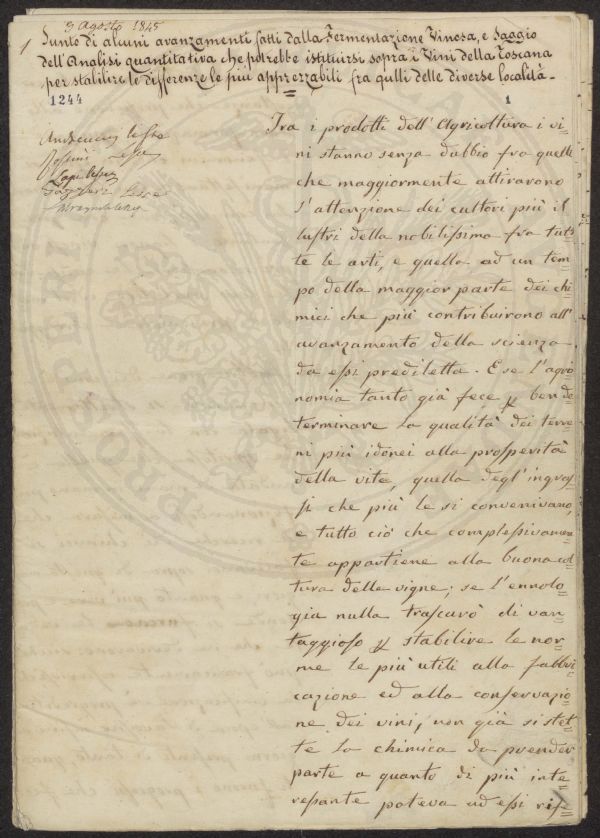 3 Agosto 1845
1
Sunto di alcuni avanzamenti fatti dalla Fermentazione Vinosa, e Saggio
dell'Analisi quantitativa che potrebbe istituirsi sopra i Vini della Toscana
per stabilire le differenze le più apprezzabili fra qulli delle diverse località -
1244
1
Tra i prodotti dell'Agricoltura i vi=
ni stanno senza dubbio fra quelli
che maggiormente attirarono
l'attenzione dei cultori più il
lustri della nobilissima fra tut=
te le arti, e quella ad un tem=
po della maggior parte dei chi=
mici che più contribuirono all'
avanzamento della scienza
da essi prediletta. E se l'agro
nomia tanto già fece p ben de
terminare la qualità dei terre
ni più idonei alla prosperità
della vite, quella degl'ingras=
si che più le si convenivano,
e tutto ciò che complessivamen
te appartiene alla buona col
tura delle vigne; se l'ennolo=
gia nulla trascurò di van=
taggioso p stabilire le nor=
me le più utili alla fabbri
cazione ed alla conservazio
ne dei vini, non già si stet=
te la chimica da prender
parte a quanto di più inte=
ressante poteva ad essi rif=
PROSPERITÀ